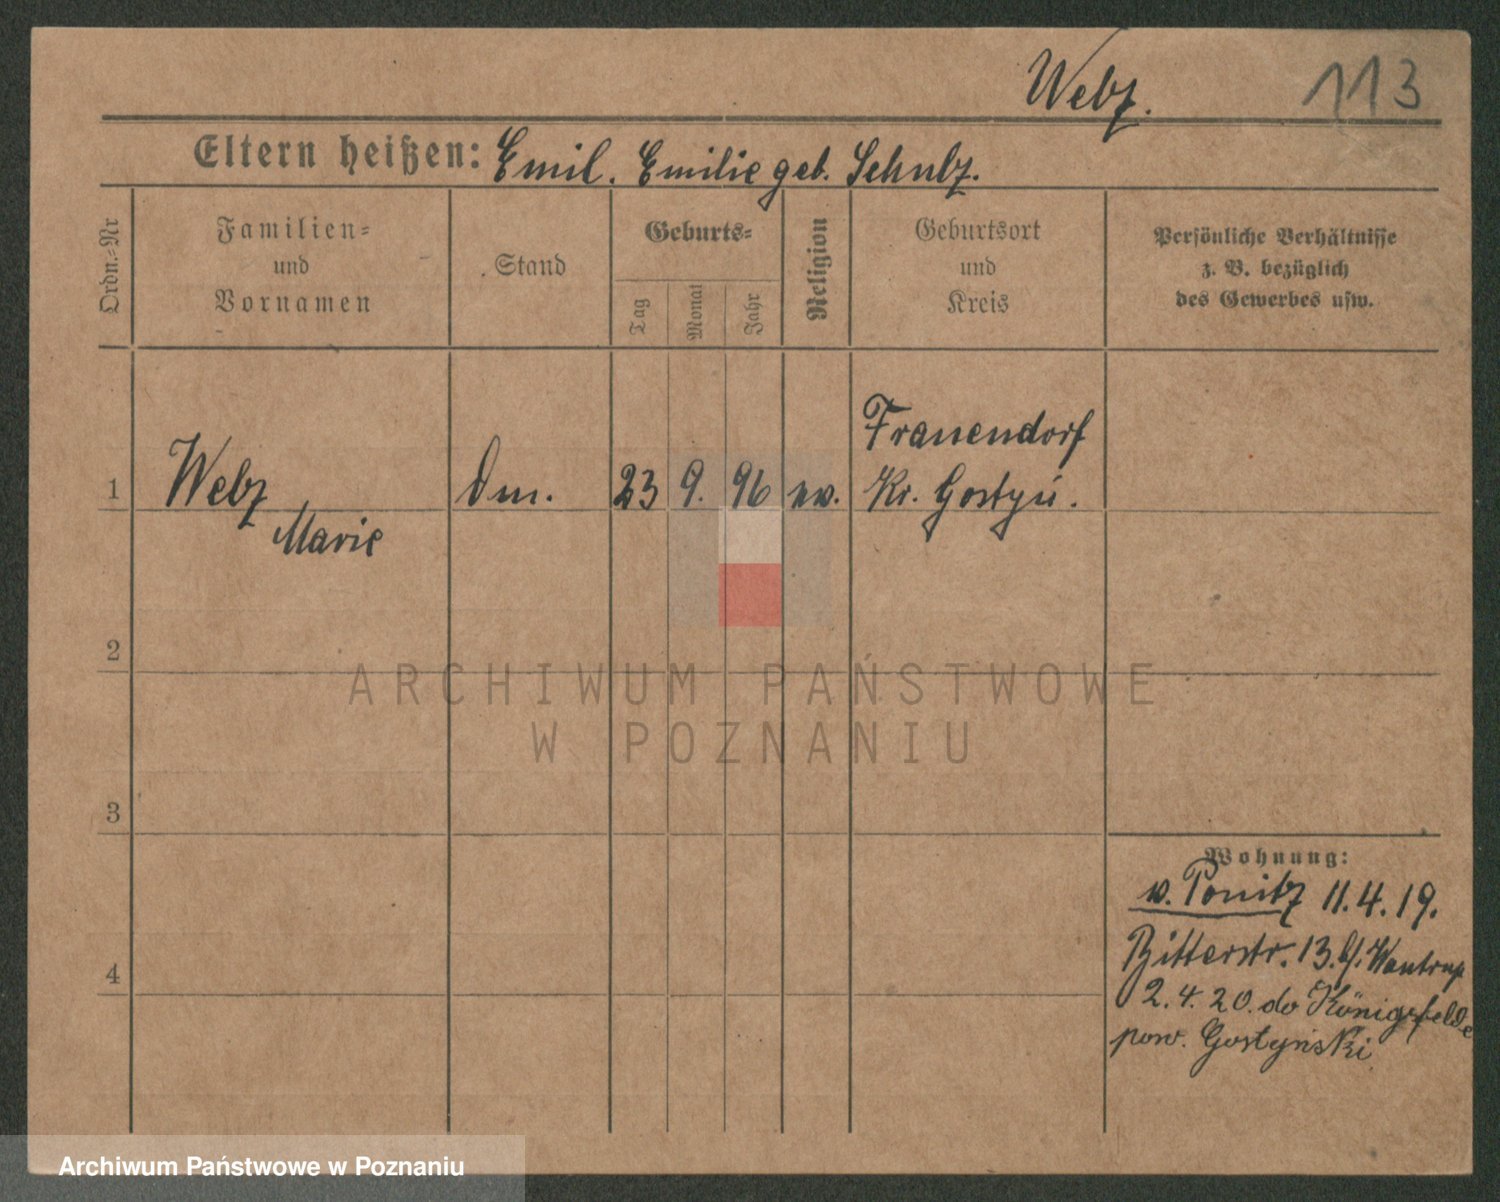 Webz.
113
Eltern heißen: Emil. Emilie geb. Schulz.
Ordn.-Nr
Familien-
und
Vornamen
Stand
Geburts-
Tag
Monat
Jahr
Religion
Geburtsort
und
Kreis
Persönliche Verhältnisse
z. B. bezüglich
des Gewerbes usw.
Frauendorf
1 Webz 23 9. 96 ev. Kr. Gostyń.
Marie
2
3
4
Wohnung:
v. Ponitz 11.4.19.
Ritterstr. 13. b/.
2.4.20. do Königsfelde
pow. Gostyński
ARCHIWUM PAŃSTWOWE
W POZNANIU
Archiwum Państwowe w Poznaniu